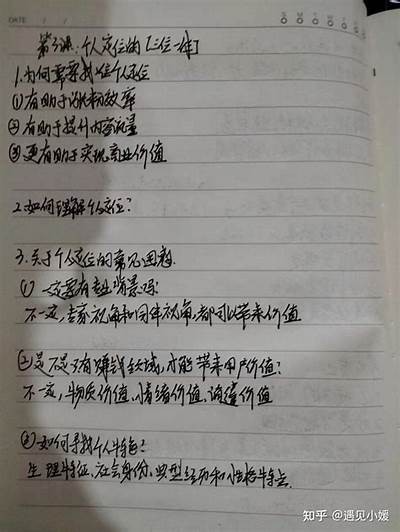 DATE / /
S M T W T F S
第3课:个人定位的[三位一体]
1.为何要找准个人定位
①有助于涨粉效率
②有助于提升内容流量
③更有助于实现商业价值
2.如何理解个人定位?
3.关于个人定位的常见困惑
① 一定要有专业背景吗?
不一定,专家视角和同伴视角,都可以带来价值
②是不是只有赚钱领域,才能带来用户价值?
不一定,物质价值,情绪价值,谈资价值
③如何寻找个人特色?
生理特征,社会身份,典型经历和性格特点.
知乎 @遇见小媛